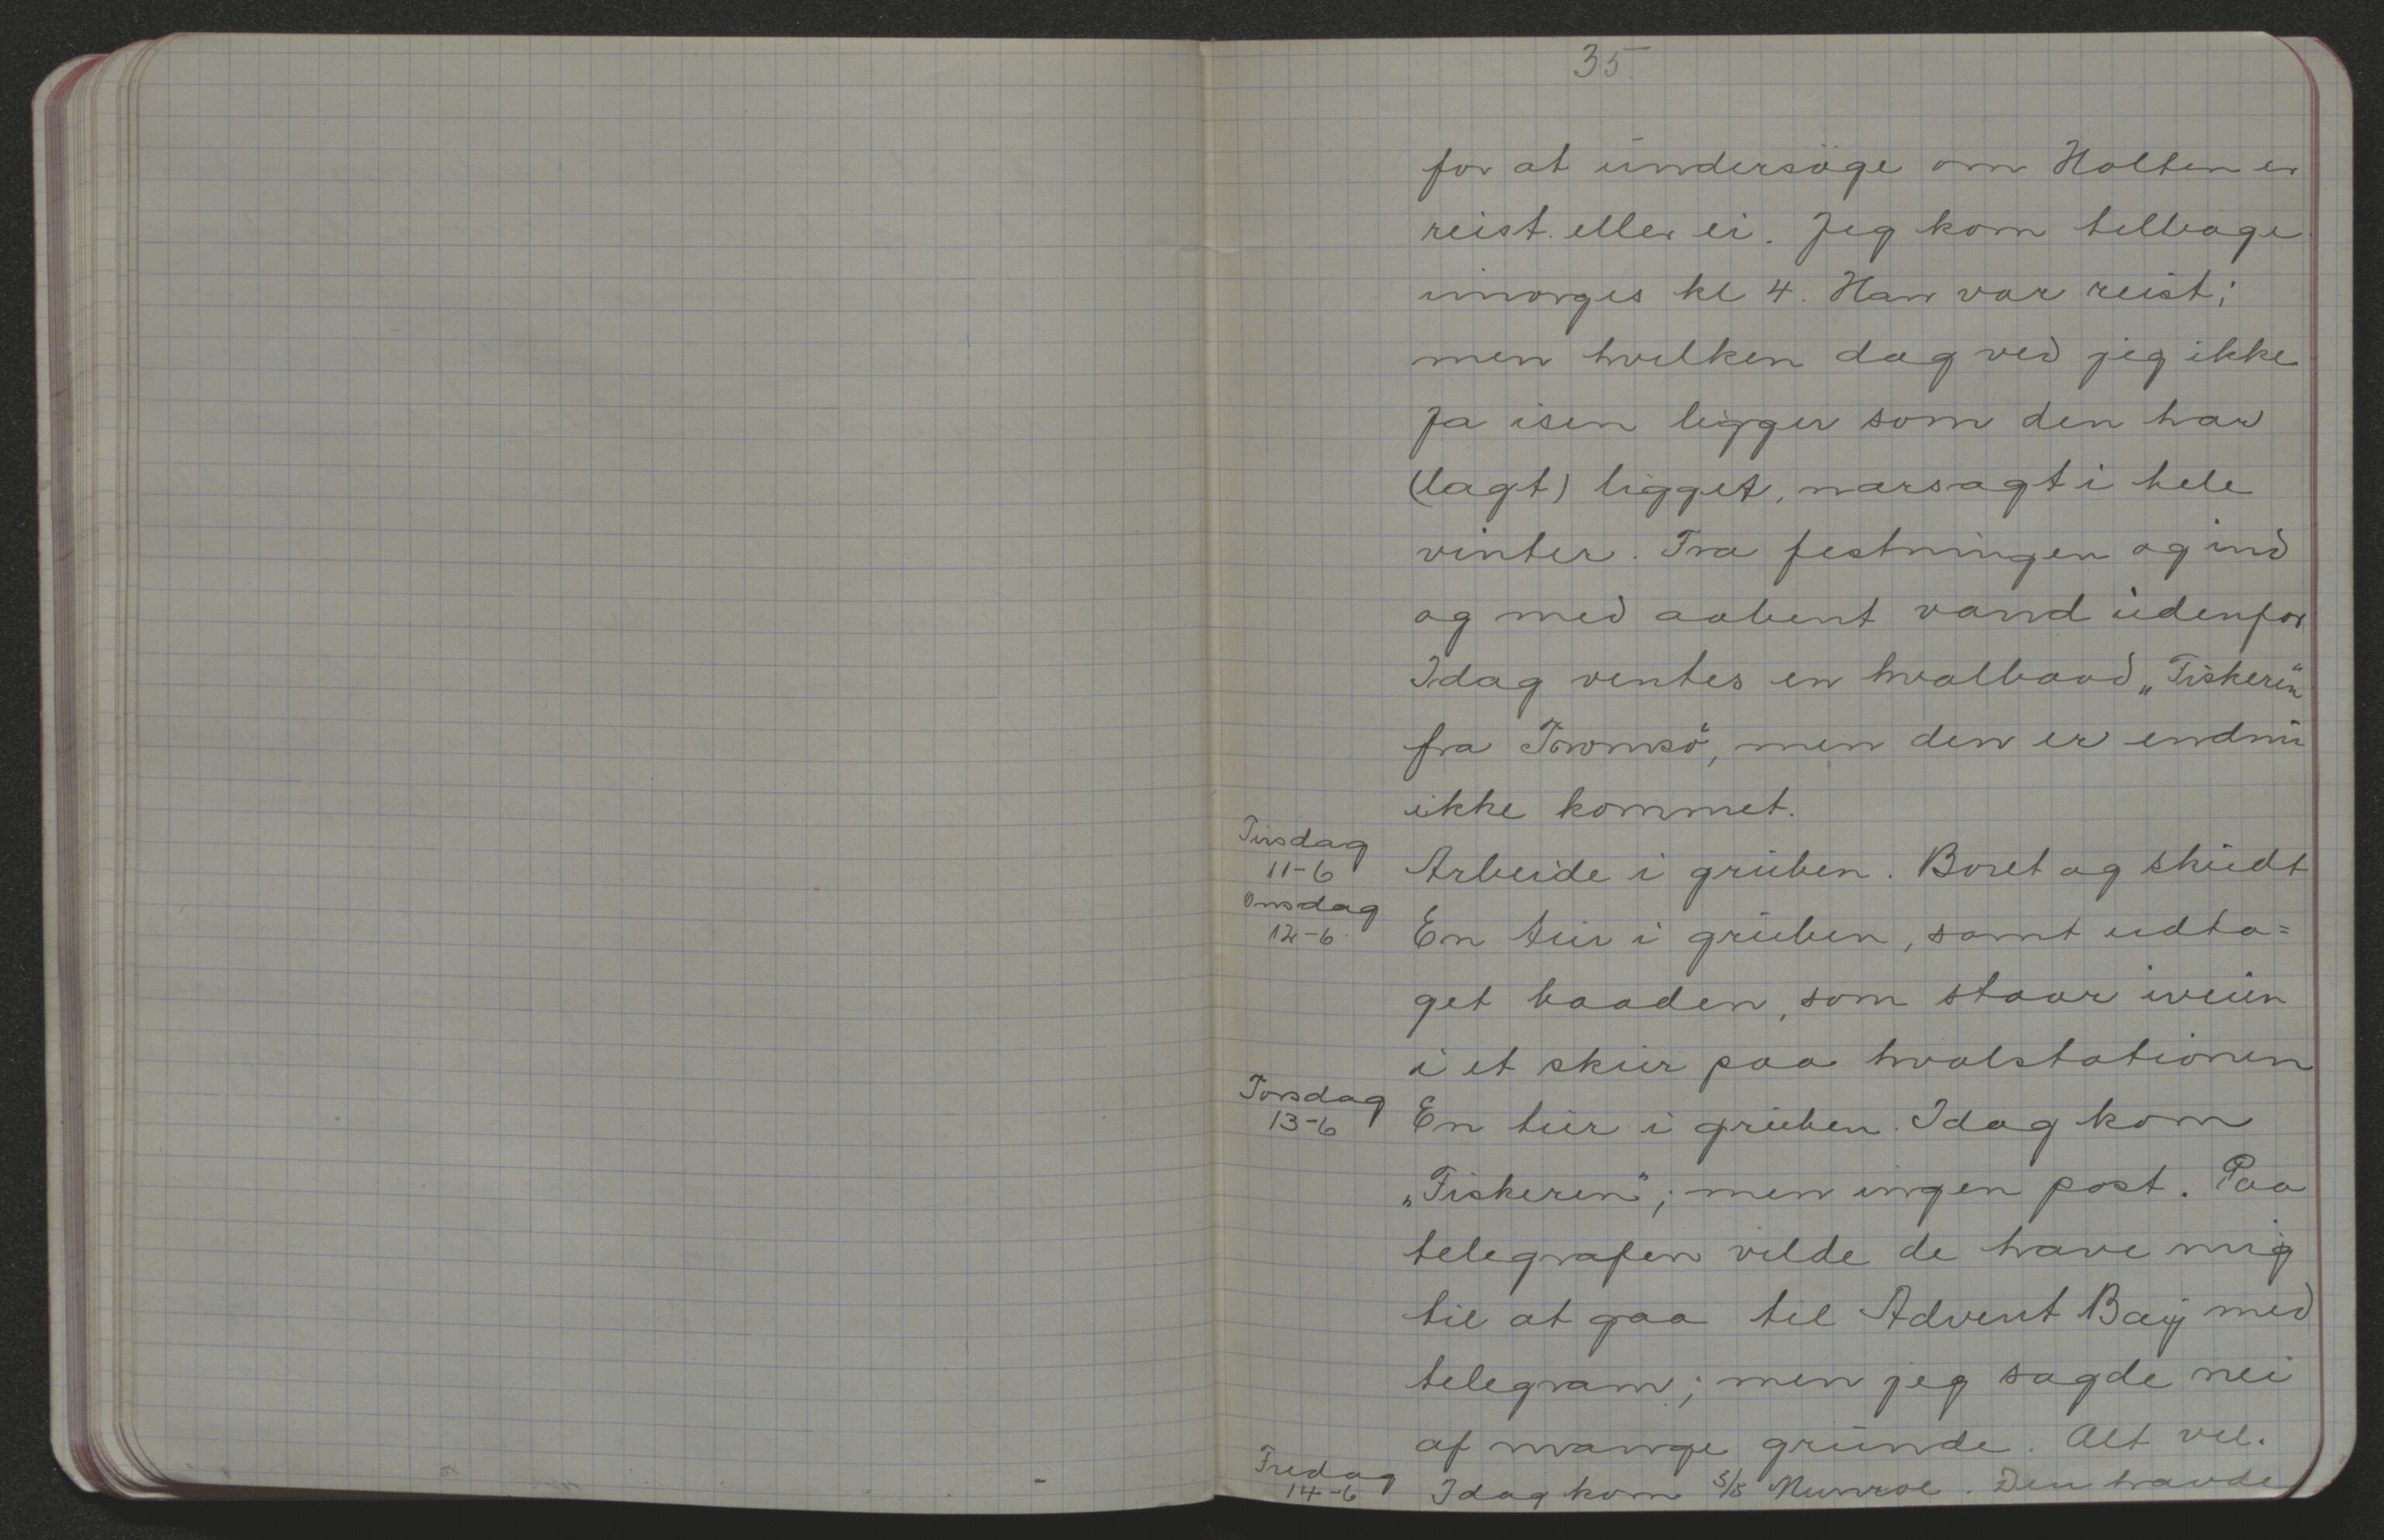 35.
for at undersöge om Holten er
reist eller ei. Jeg kom tilbage
imorges kl 4. Han var reist;
men hvilken dag ved jeg ikke
Ja isen ligger som den har
(lagt) ligget, narsagt i hele
vinter. Fra festningen og ind
og med aabent vand udenfor
Idag ventes en hvalbaad „Fiskeren“
fra Tromsö, men den er endnu
ikke kommet.
Tirsdag
11-6 Arbeide i gruben. Boret og skudt
Onsdag
12-6 En tur i gruben, samt udta=
get baaden, som staar iveien
i et skur paa hvalstationen
Torsdag
13-6 En tur i gruben. Idag kom
„Fiskeren“; men ingen post. Paa
telegrafen vilde de have mig
til at gaa til Advent Bay med
telegram; men jeg sagde nei
af mange grunde. Alt vel.
Fredag
14-6 Idag kom S/S Munroe. Den havde